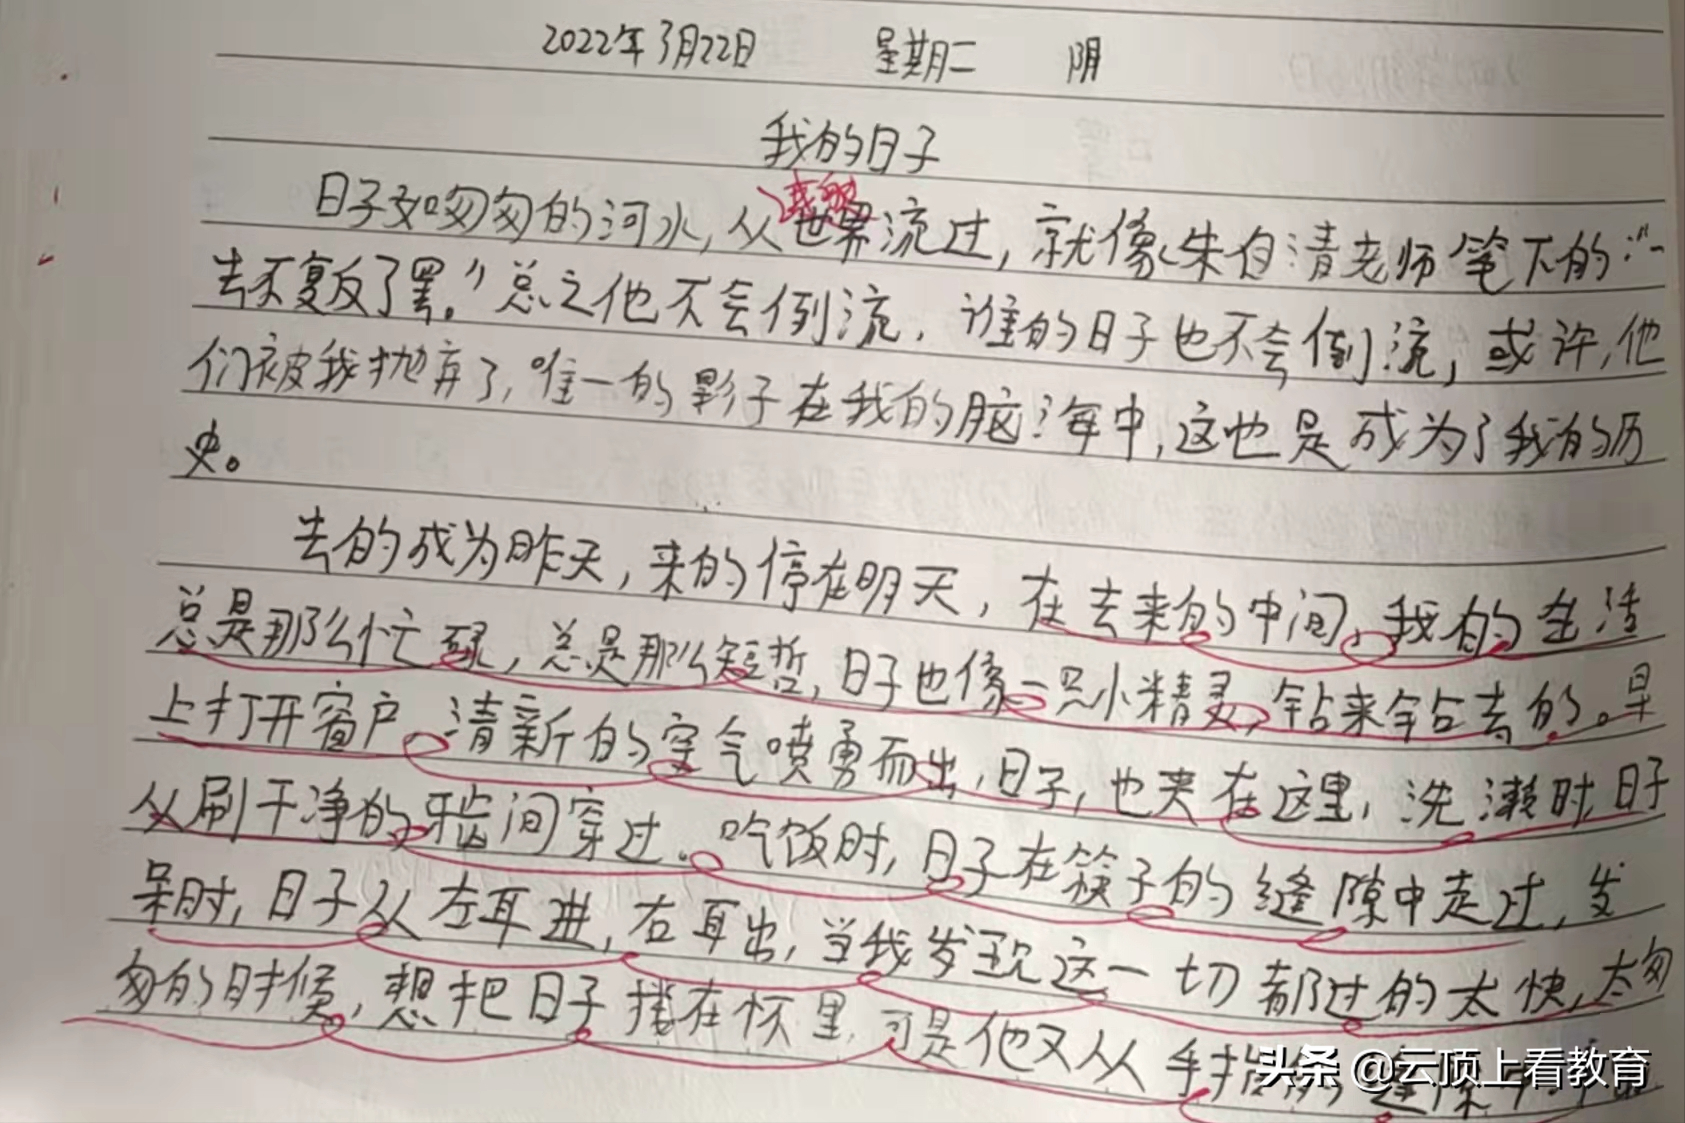 2022年3月22日 星期二 阴
我的日子
日子如匆匆的河水,从世界流过,就像朱自清老师笔下的:“一
去不复反了罢。”总之他不会倒流,谁的日子也不会倒流,或许,他
们被我抛弃了,唯一的影子在我的脑海中,这也是成为了我的历
史。
去的成为昨天,来的停在明天,在去来的中间,我的生活
总是那么忙碌,总是那么短暂,日子也像一只小精灵,钻来钻去的。早
上打开窗户,清新的空气喷勇而出,日子,也夹在这里,洗漱时,日子
从刷干净的牙齿间穿过。吃饭时,日子在筷子的缝隙中走过,发
呆时,日子从左耳进,右耳出,当我发现这一切都过的太快,太匆
匆的时候,想把日子搂在怀里,可是他又从手指
头条 @云顶上看教育